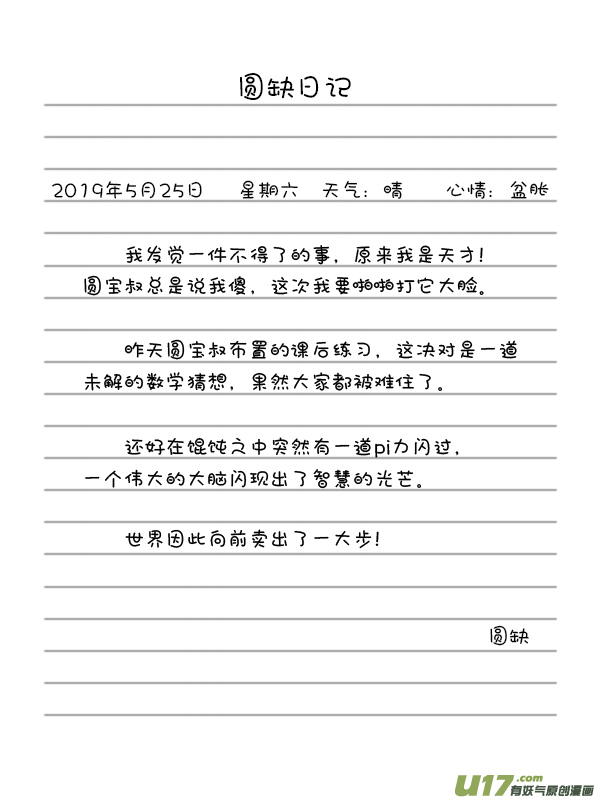 圆缺日记
2019年5月25日 星期六 天气：晴 心情：盆胀
我发觉一件不得了的事，原来我是天才！
圆宝叔总是说我傻，这次我要啪啪打它大脸。
昨天圆宝叔布置的课后练习，这决对是一道
未解的数学猜想，果然大家都被难住了。
还好在馄饨之中突然有一道pi力闪过，
一个伟大的大脑闪现出了智慧的光芒。
世界因此向前卖出了一大步！
圆缺
U17.com
有妖气原创漫画